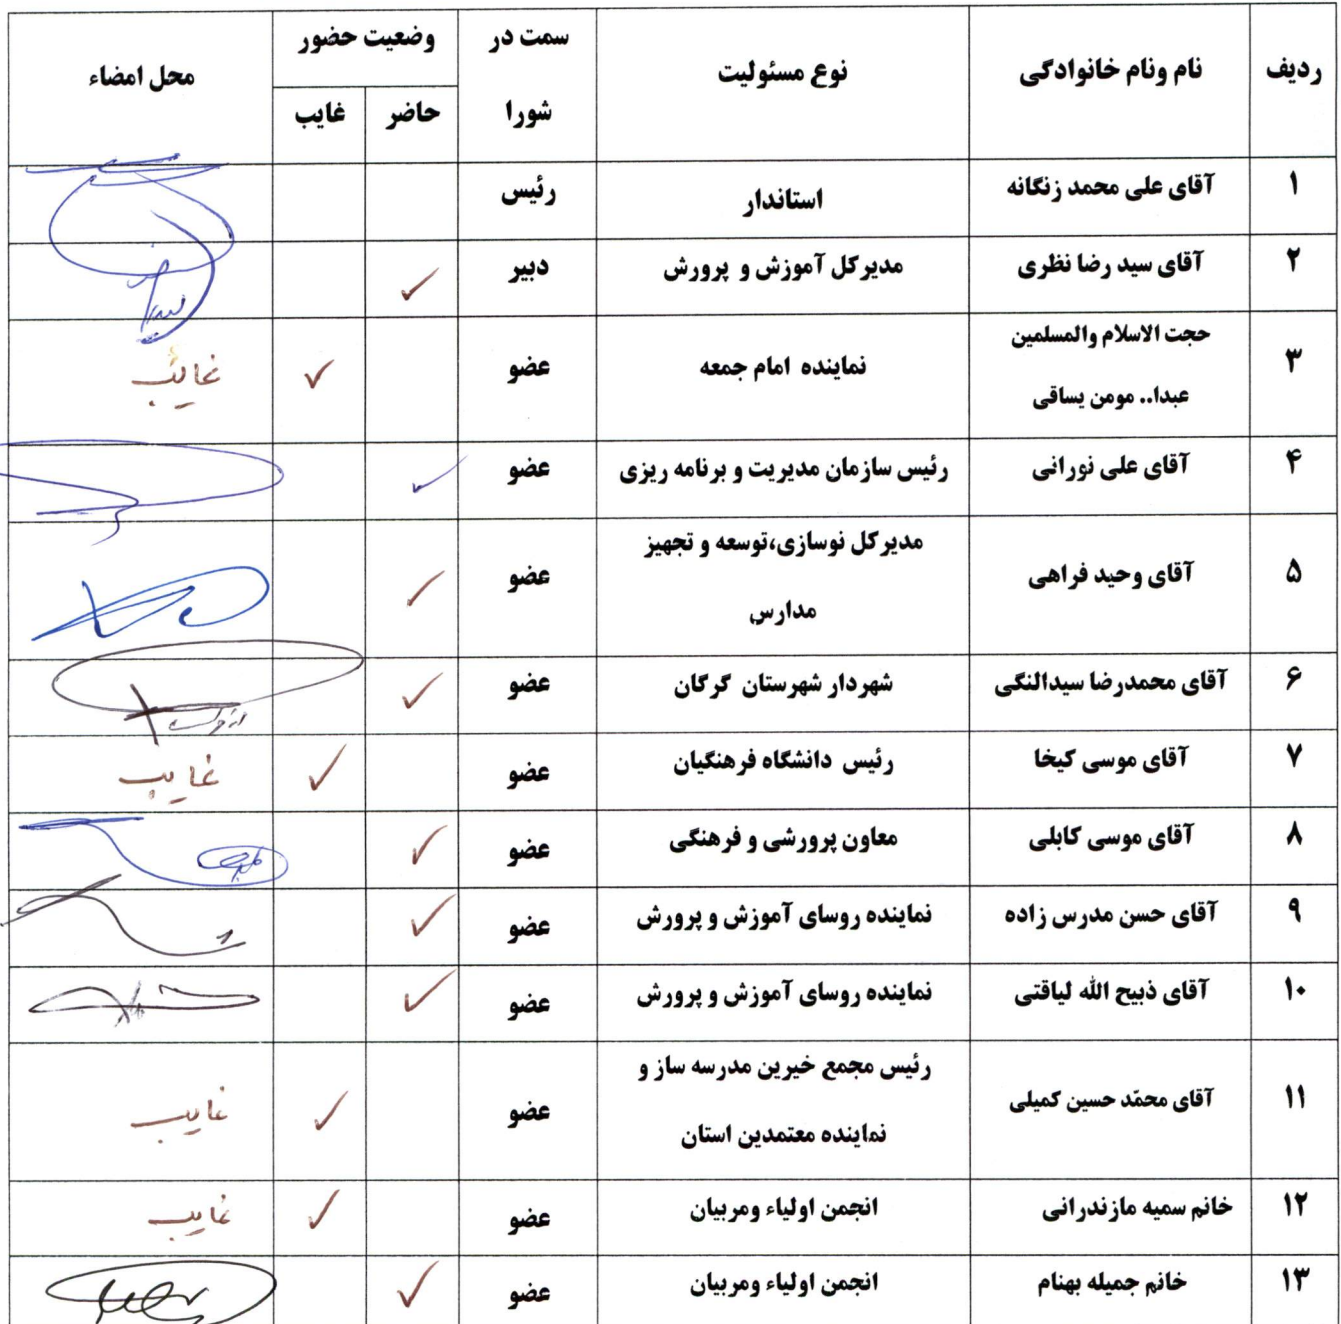 ردیف نام ونام خانوادگی نوع مسئولیت سمت در شورا وضعیت حضور محل امضاء
حاضر غایب
۱ آقای علی محمد زنگانه استاندار رئیس
۲ آقای سید رضا نظری مدیرکل آموزش و پرورش دبیر ✓
۳ حجت الاسلام والمسلمین نماینده امام جمعه عضو ✓ غائب
عبدا.. مومن یساقی
۴ آقای علی نورانی رئیس سازمان مدیریت و برنامه ریزی عضو ✓
۵ آقای وحید فراهی مدیرکل نوسازی،توسعه و تجهیز عضو ✓
مدارس
۶ آقای محمدرضا سیدالنگی شهردار شهرستان گرگان عضو ✓
۷ آقای موسی کیخا رئیس دانشگاه فرهنگیان عضو ✓ غایب
۸ آقای موسی کابلی معاون پرورشی و فرهنگی عضو ✓
۹ آقای حسن مدرس زاده نماینده روسای آموزش و پرورش عضو ✓
۱۰ آقای ذبیح الله لیاقتی نماینده روسای آموزش و پرورش عضو ✓
۱۱ آقای محمّد حسین کمیلی رئیس مجمع خیرین مدرسه ساز و عضو ✓ غایب
نماینده معتمدین استان
۱۲ خانم سمیه مازندرانی انجمن اولیاء ومربیان عضو ✓ غایب
۱۳ خانم جمیله بهنام انجمن اولیاء ومربیان عضو ✓